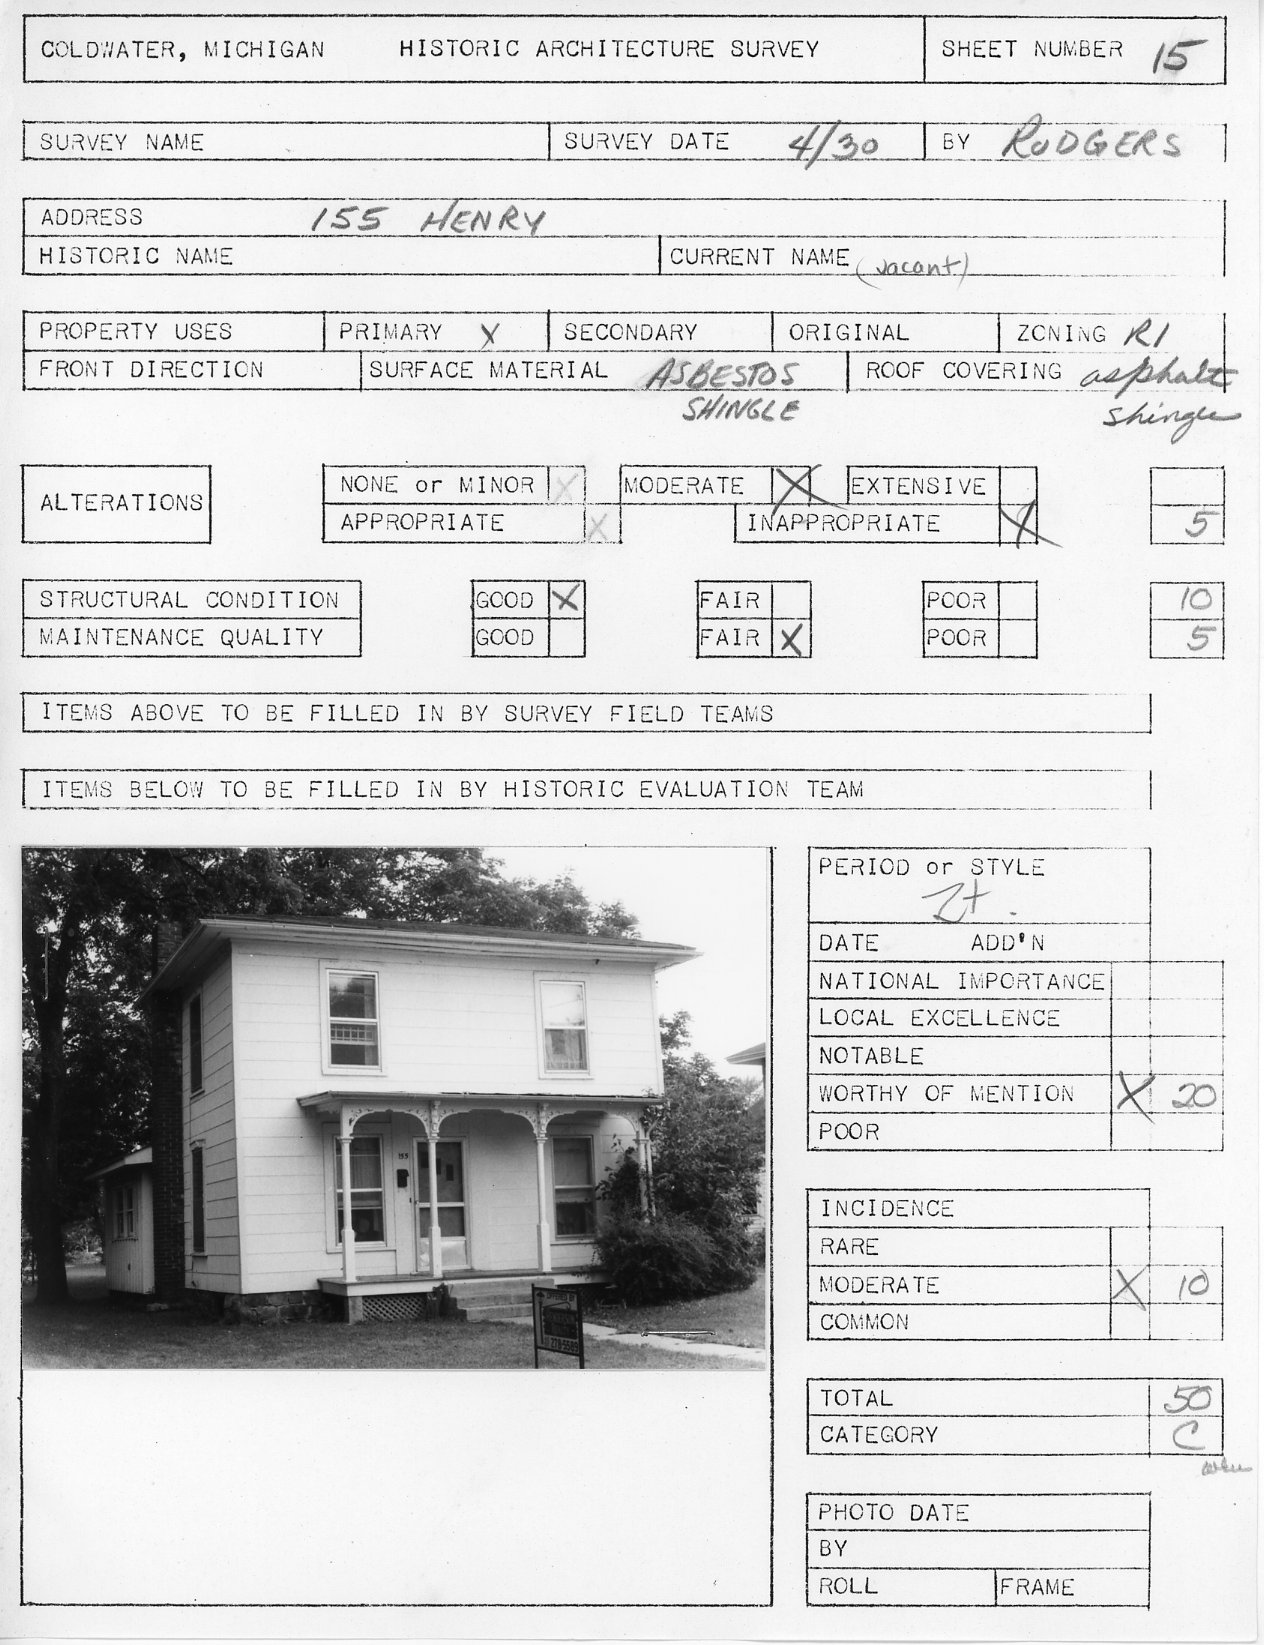 COLDWATER, MICHIGAN HISTORIC ARCHITECTURE SURVEY SHEET NUMBER 15
SURVEY NAME SURVEY DATE 4/30 BY RODGERS
ADDRESS 155 HENRY
HISTORIC NAME CURRENT NAME (vacant)
PROPERTY USES PRIMARY X SECONDARY ORIGINAL ZONING R1
FRONT DIRECTION SURFACE MATERIAL ASBESTOS ROOF COVERING asphalt
SHINGLE shingle
ALTERATIONS
NONE or MINOR X MODERATE X EXTENSIVE
APPROPRIATE X INAPPROPRIATE X 5
STRUCTURAL CONDITION GOOD X FAIR POOR 10
MAINTENANCE QUALITY GOOD FAIR X POOR 5
ITEMS ABOVE TO BE FILLED IN BY SURVEY FIELD TEAMS
ITEMS BELOW TO BE FILLED IN BY HISTORIC EVALUATION TEAM
PERIOD or STYLE
It.
DATE ADD'N
NATIONAL IMPORTANCE
LOCAL EXCELLENCE
NOTABLE
WORTHY OF MENTION X 20
POOR
INCIDENCE
RARE
MODERATE X 10
COMMON
TOTAL 50
CATEGORY C
PHOTO DATE
BY
ROLL FRAME
155
OFFERED BY